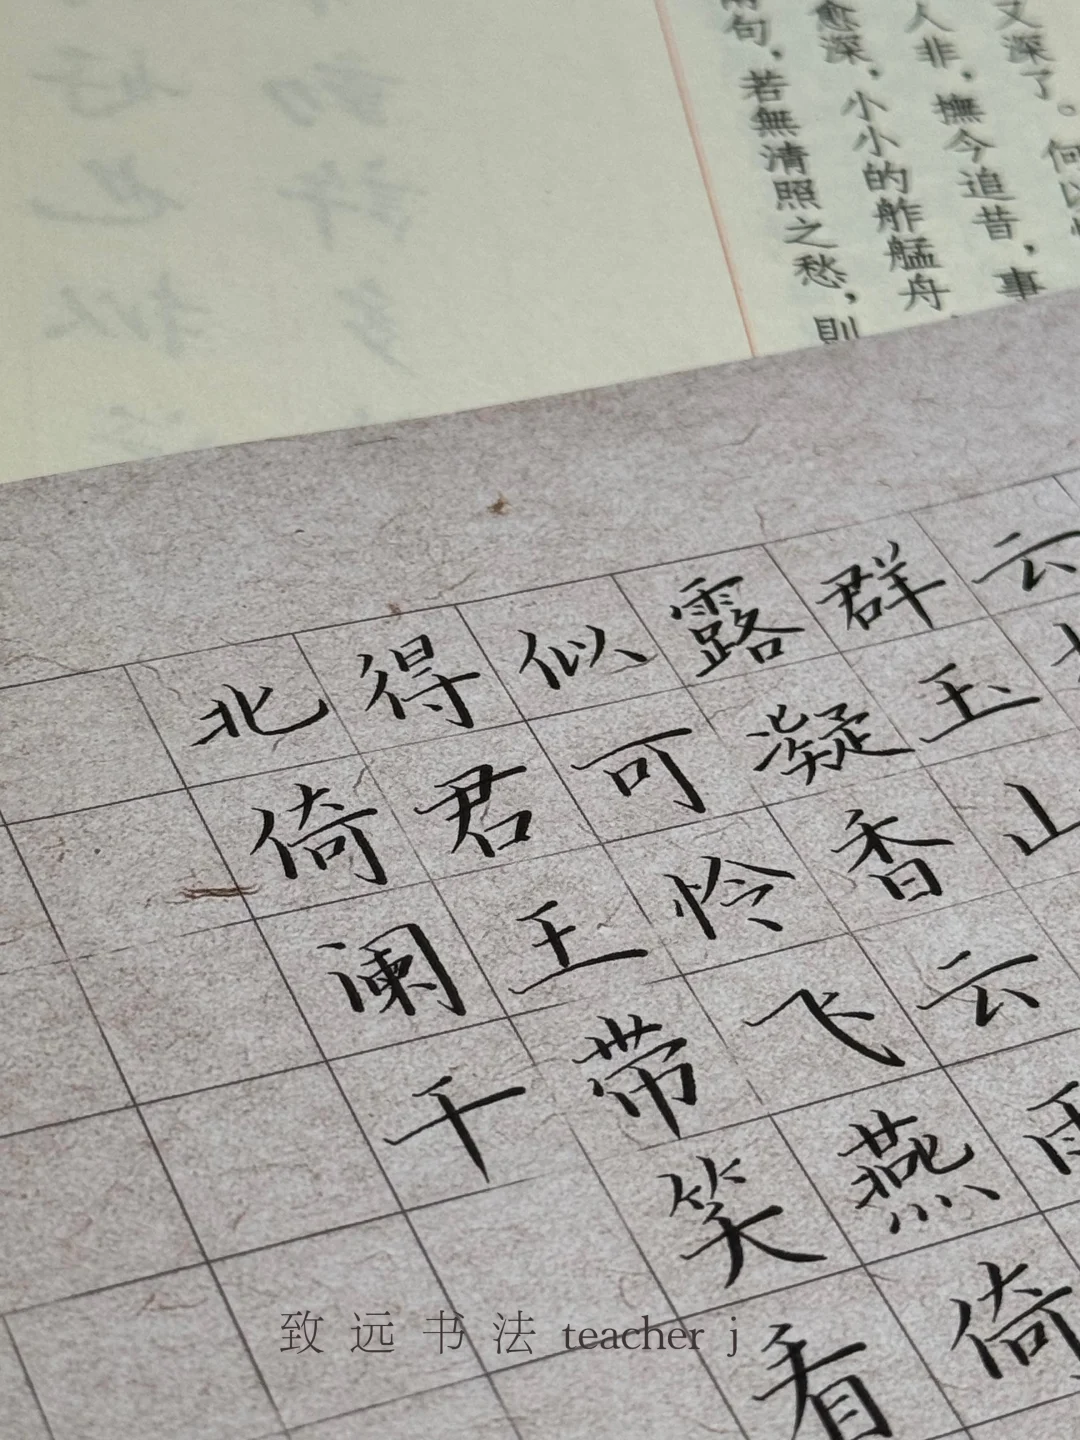 又深了。何以
人非，撫今追昔，事
愈深，小小的舴艋舟，
句，若無清照之愁，則
云
群玉山
露凝香云雨
似可怜飞燕倚
得君王带笑看
北倚阑干
致远书法 teacher j